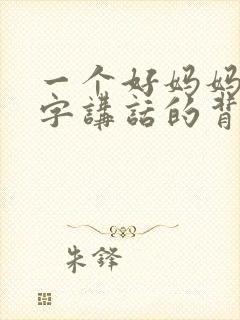 一个好妈妈
字講話的背
朱鋒